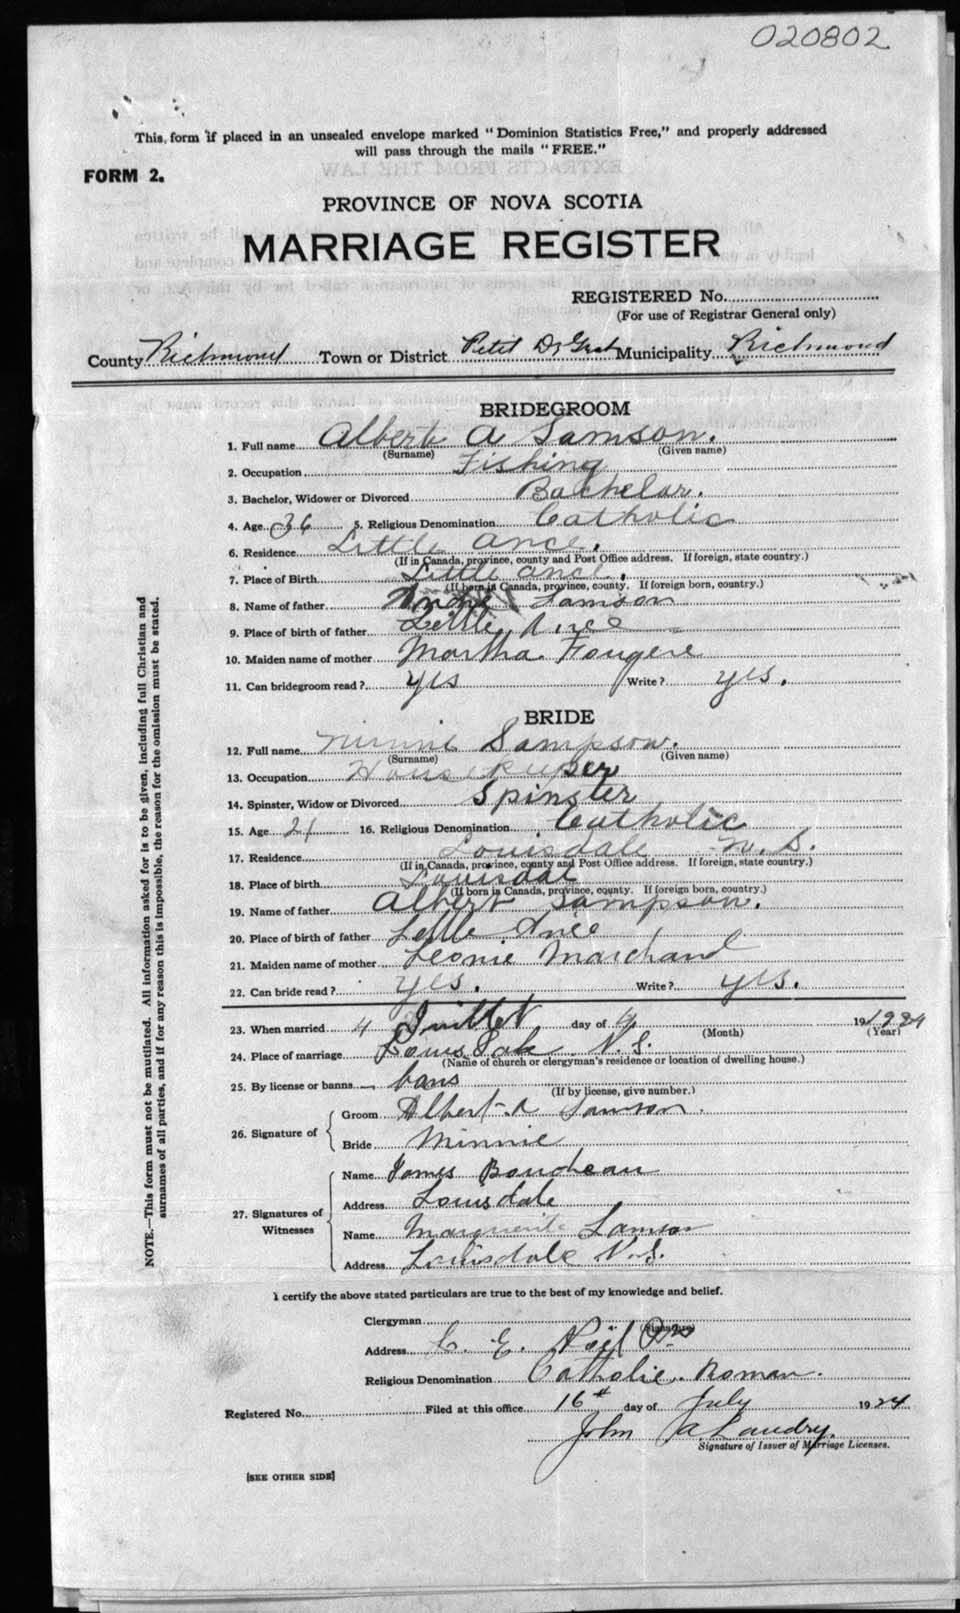 020802
This form if placed in an unsealed envelope marked "Dominion Statistics Free," and properly addressed
will pass through the mails "FREE."
FORM 2.
PROVINCE OF NOVA SCOTIA
MARRIAGE REGISTER
REGISTERED No.
(For use of Registrar General only)
County Richmond Town or District Petit De Grat Municipality Richmond
BRIDEGROOM
1. Full name Albert A Samson.
(Surname) (Given name)
2. Occupation Fishing
3. Bachelor, Widower or Divorced Bachelar.
4. Age 36 5. Religious Denomination Catholic
6. Residence Little Ance.
(If in Canada, province, county and Post Office address. If foreign, state country.)
7. Place of Birth Little Ance.
(If born in Canada, province, county. If foreign born, country.)
8. Name of father Andre Samson
9. Place of birth of father Little Ance
10. Maiden name of mother Martha Fougere
11. Can bridegroom read? yes Write? yes.
BRIDE
12. Full name Minnie Sampson.
(Surname) (Given name)
13. Occupation Housekeeper
14. Spinster, Widow or Divorced Spinster
15. Age 21 16. Religious Denomination Catholic
17. Residence Louisdale N. S.
(If in Canada, province, county and Post Office address. If foreign, state country.)
18. Place of birth Louisdal
(If born in Canada, province, county. If foreign born, country.)
19. Name of father Albert Sampson.
20. Place of birth of father Little Ance
21. Maiden name of mother Leonie Marchand
22. Can bride read? yes. Write? yes.
23. When married 4 Juillet day of 19 1924
(Month) (Year)
24. Place of marriage Louisdale N.S.
(Name of church or clergyman's residence or location of dwelling house.)
25. By license or banns bans
(If by license, give number.)
26. Signature of
Groom Albert A Samson.
Bride Minnie
27. Signatures of Witnesses
Name James Boudreau
Address Louisdale
Name Marguerite Samson
Address Louisdale N.S.
I certify the above stated particulars are true to the best of my knowledge and belief.
Clergyman
(Signature)
Address C. E.
Religious Denomination Catholic Roman.
Registered No. Filed at this office 16th day of July 1924
John A. Landry.
Signature of Issuer of Marriage Licenses.
[SEE OTHER SIDE]
NOTE.—This form must not be mutilated. All information asked for is to be given, including full Christian and
surnames of all parties, and if for any reason this is impossible, the reason for the omission must be stated.